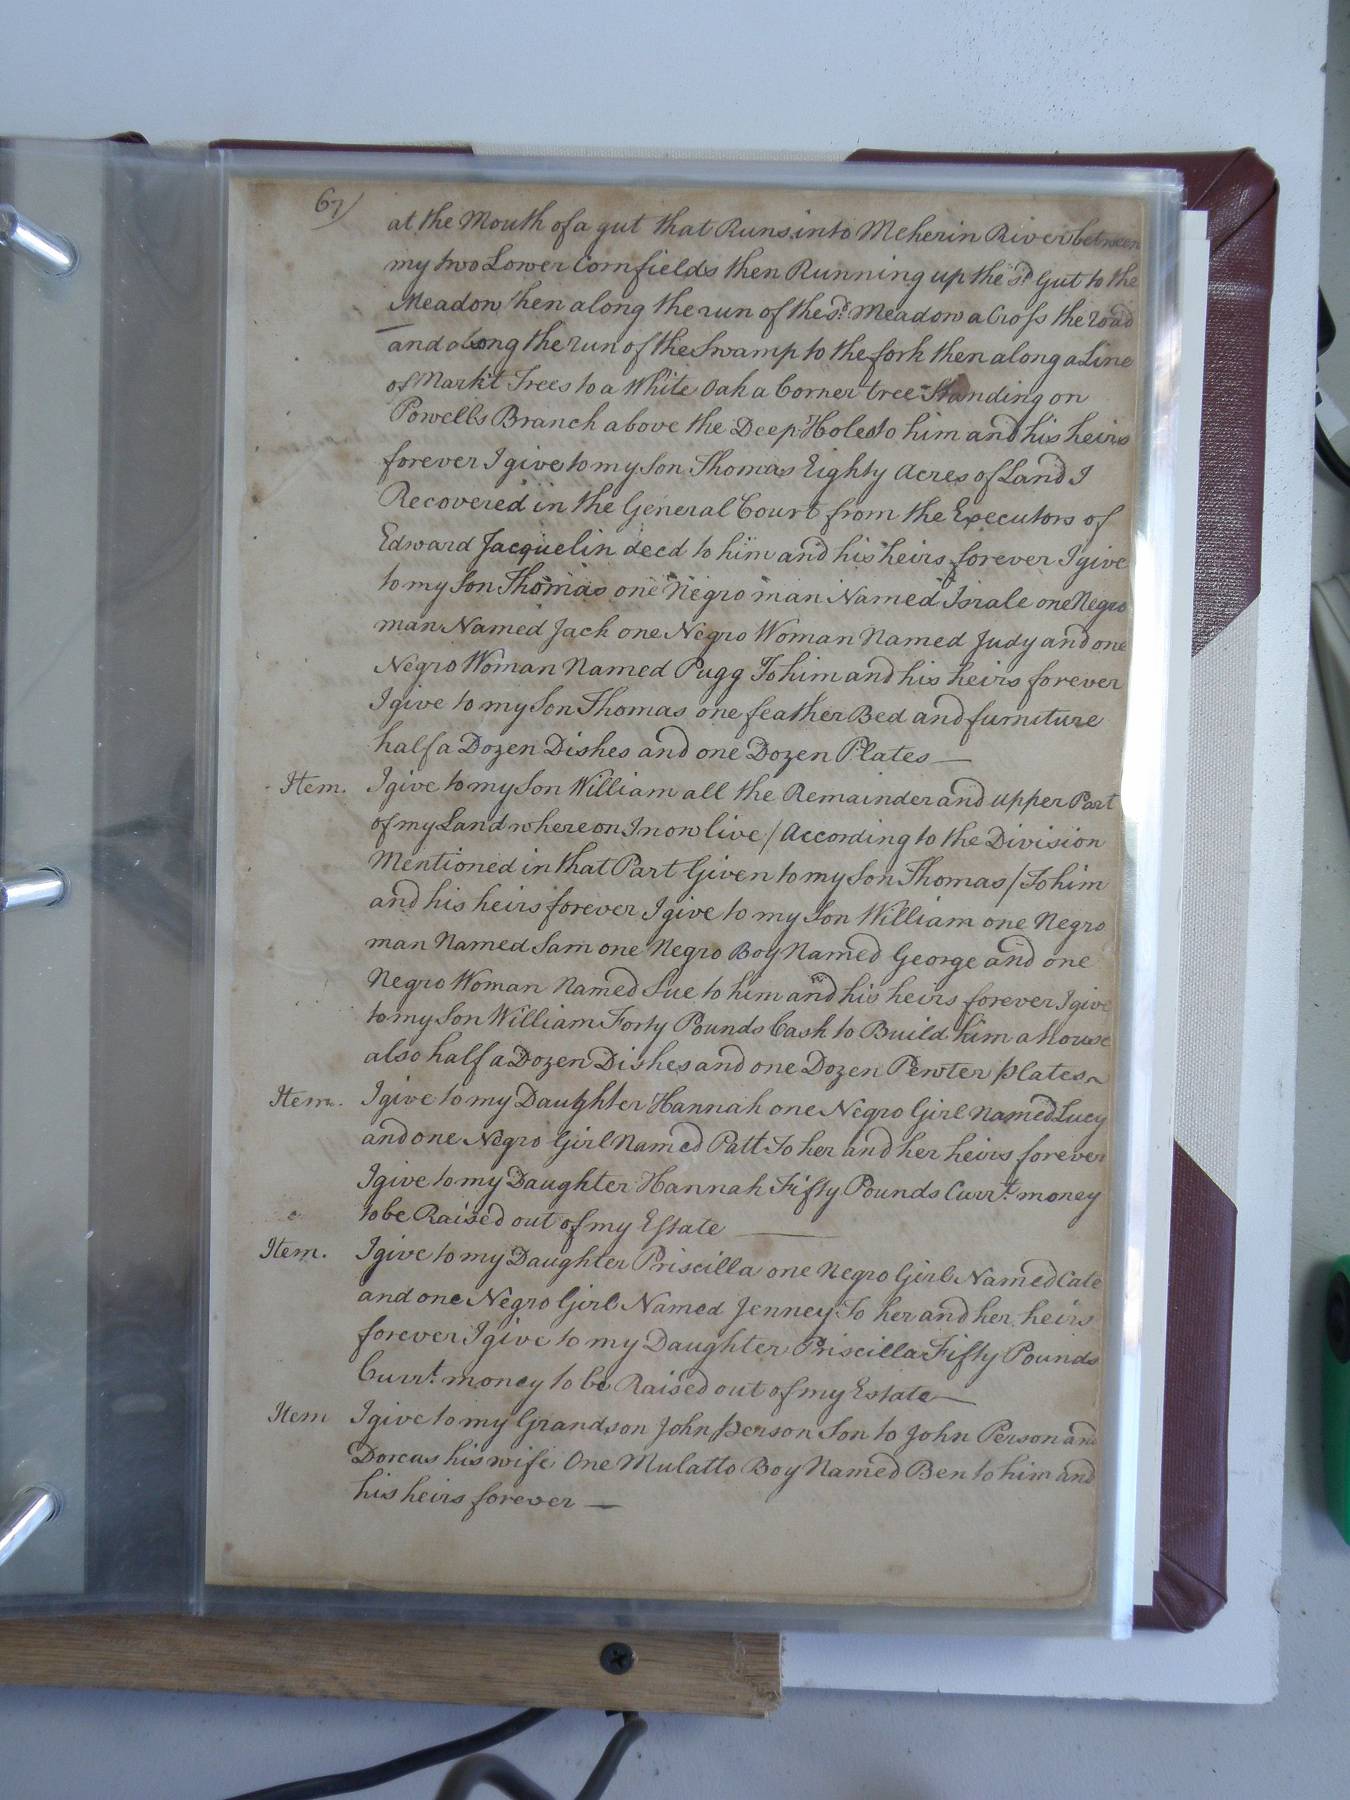 67/
at the Mouth of a gut that Runs into Meherin River between
my two Lower Cornfields then Running up the sd. Gut to the
Meadow then along the run of the sd. Meadow a Cross the road
and along the run of the Swamp to the fork then along a Line
of Markt Trees to a White Oak a Corner tree Standing on
Powells Branch above the Deep Holes to him and his heirs
forever I give to my Son Thomas Eighty Acres of Land I
Recovered in the General Court from the Executors of
Edward Jacquelin decd to him and his heirs forever I give
to my Son Thomas one Negro man Named one Negro
man Named Jack one Negro Woman Named Judy and one
Negro Woman Named Pugg To him and his heirs forever
I give to my Son Thomas one feather Bed and furniture
half a Dozen Dishes and one Dozen Plates —
Item. I give to my Son William all the Remainder and upper Part
of my Land whereon I now live / According to the Division
Mentioned in that Part Given to my Son Thomas / To him
and his heirs forever I give to my Son William one Negro
man Named Sam one Negro Boy Named George and one
Negro Woman Named Sue to him and his heirs forever I give
to my Son William Forty Pounds Cash to Build him a House
also half a Dozen Dishes and one Dozen Pewter plates
Item. I give to my Daughter Hannah one Negro Girl Named Lucy
and one Negro Girl Named Patt To her and her heirs forever
I give to my Daughter Hannah Fifty Pounds Currt. money
to be Raised out of my Estate —
Item. I give to my Daughter Priscilla one Negro Girl Named Cate
and one Negro Girl Named Jenney To her and her heirs
forever I give to my Daughter Priscilla Fifty Pounds
Currt. money to be Raised out of my Estate —
Item I give to my Grandson John Person Son to John Person and
Dorcas his wife One Mulatto Boy Named Ben to him and
his heirs forever —